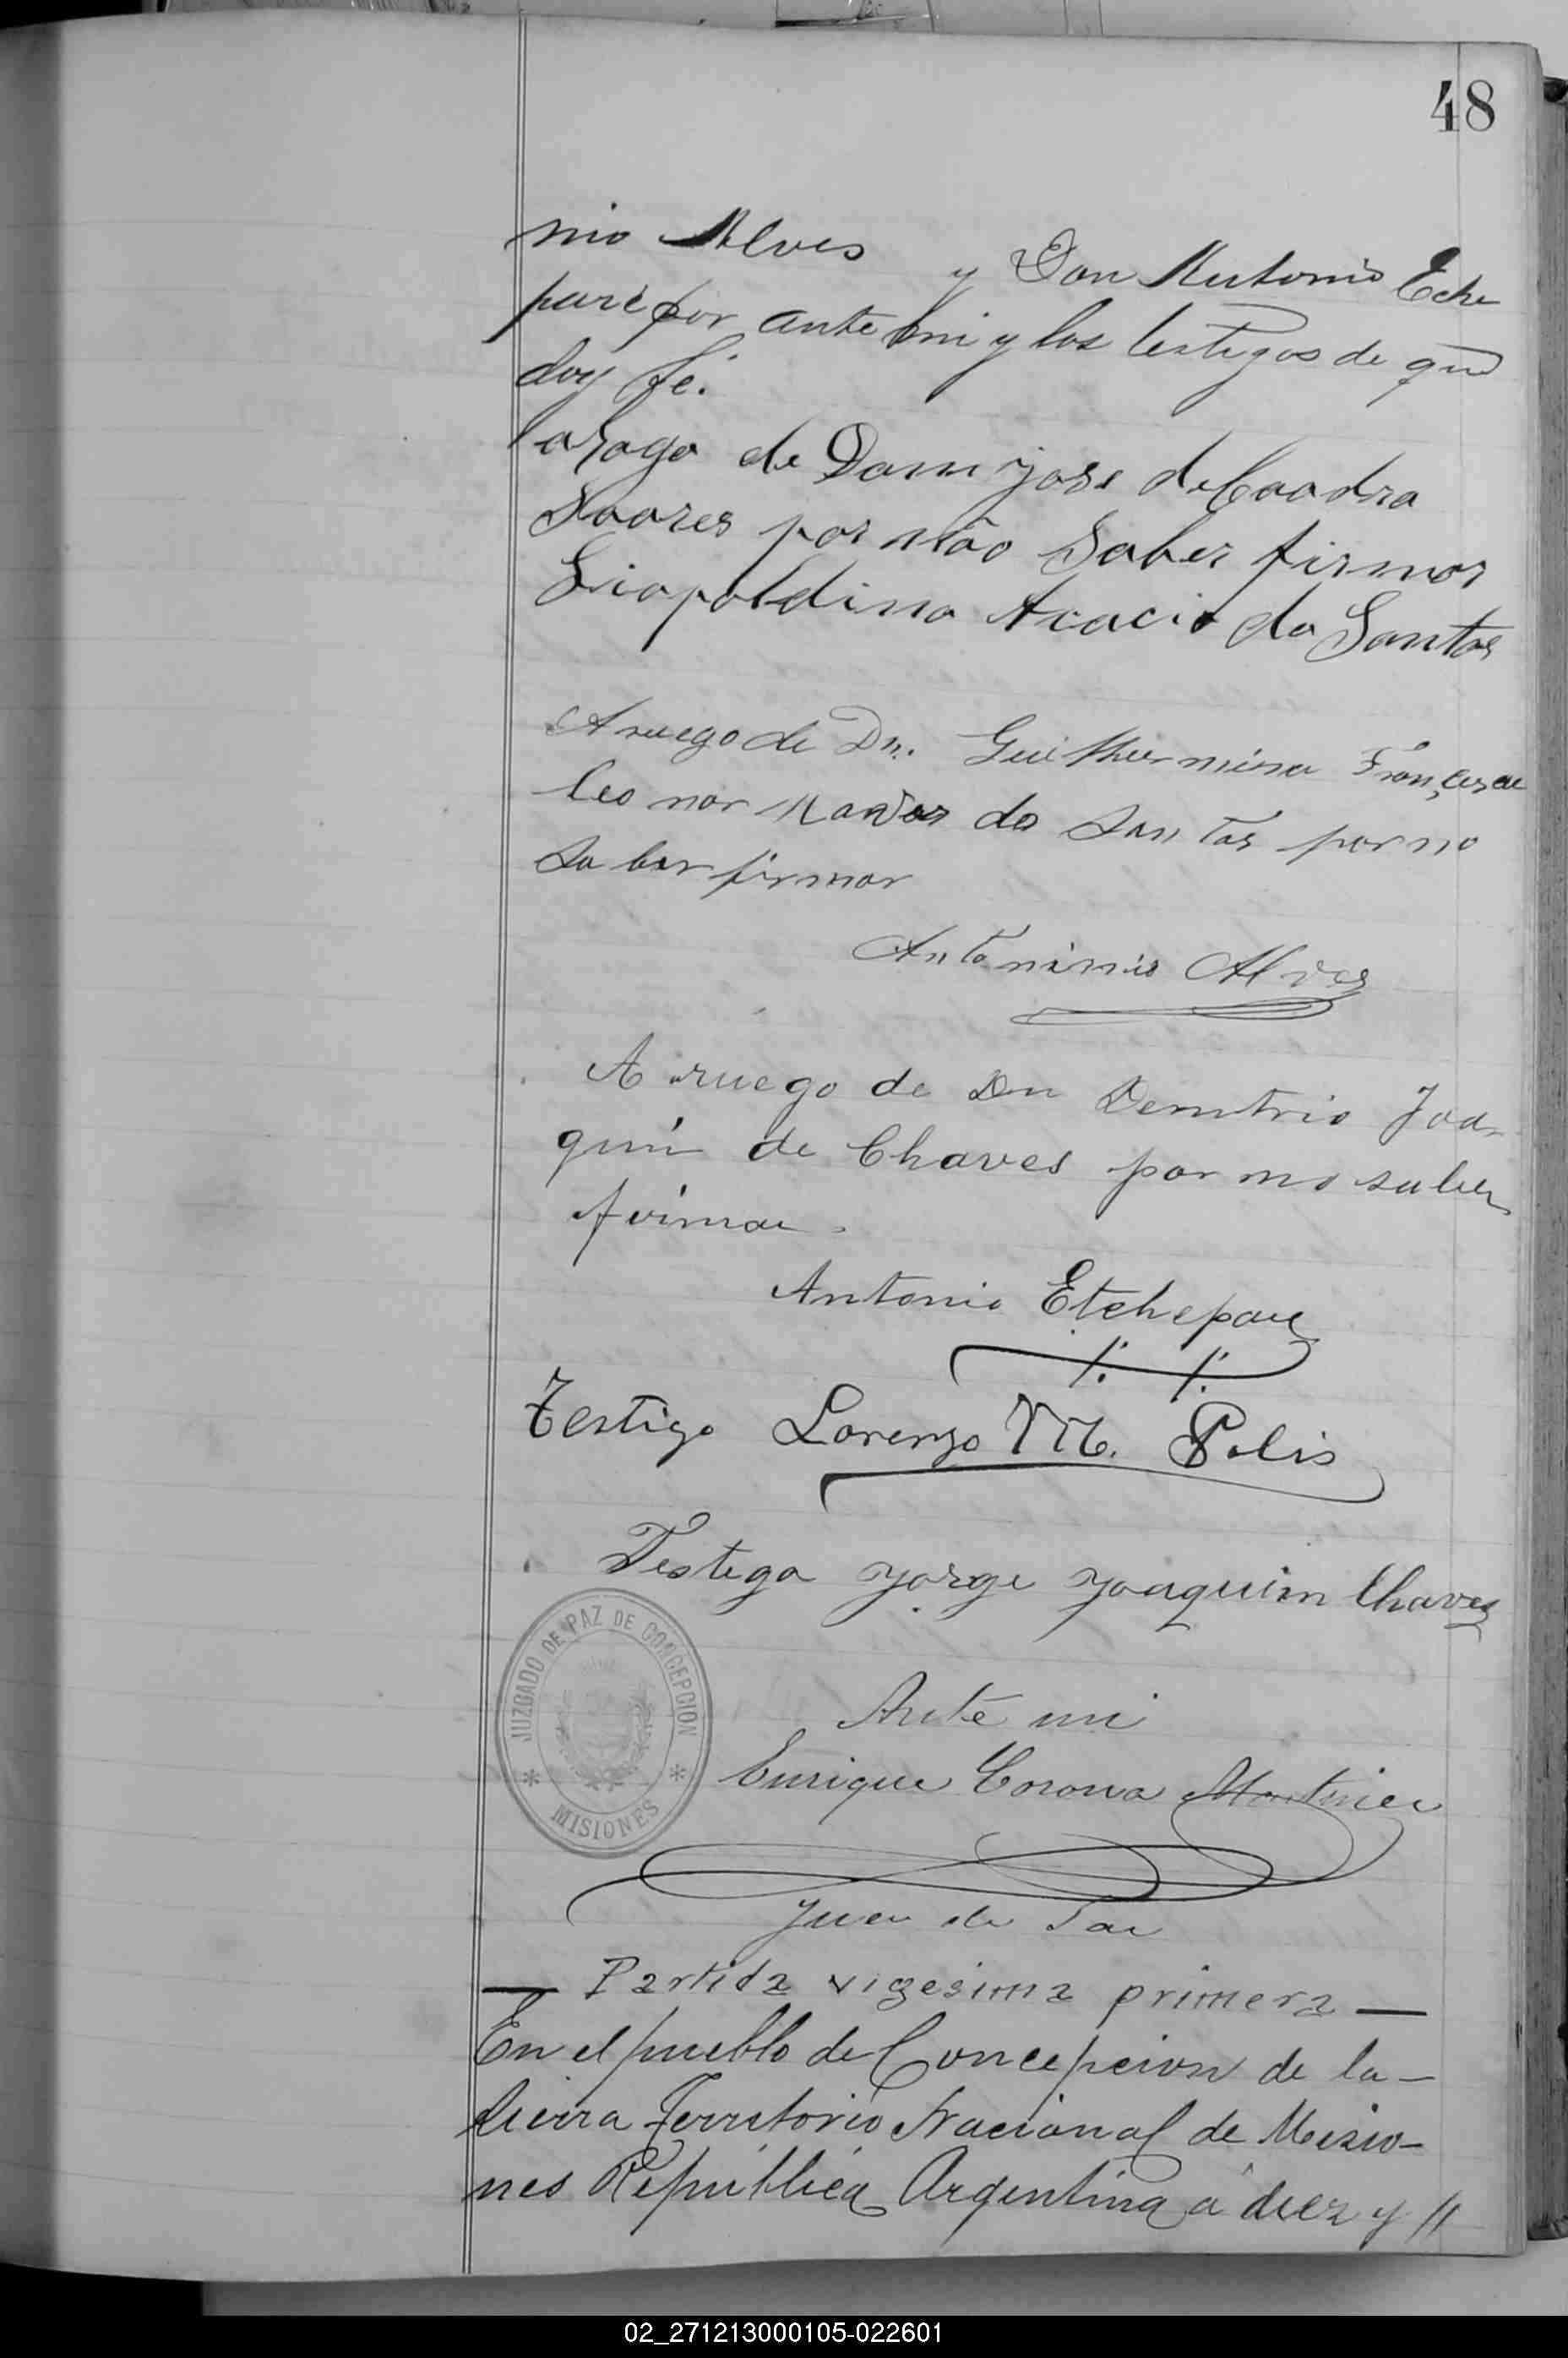 48
nio Alves y Don Antonio Eche
pare por ante mi y los testigos de que
doy fé.
arogo de Dom José de
Soares por não Saber firmar
Liopoldino Acacio do Santos
A ruego de Dn. Guilhermina Françisca
Leonor dos Santos por no
saber firmar
Antoninio Alves
A ruego de Dn Demetrio Joa-
quin de Chaves por no saber
firmar.
Antonio Etchepare
Testigo Lorenzo M. Solis
Testigo Jorge Joaquim Chaves
JUZGADO DE PAZ DE CONCEPCION
* MISIONES *
Ante mi
Enrique Corona Martinez
Juez de Paz
— Partida vigesima primera —
En el pueblo de Concepcion de la-
Sierra Territorio Nacional de Misio-
nes República Argentina á diez y //
02_271213000105-022601